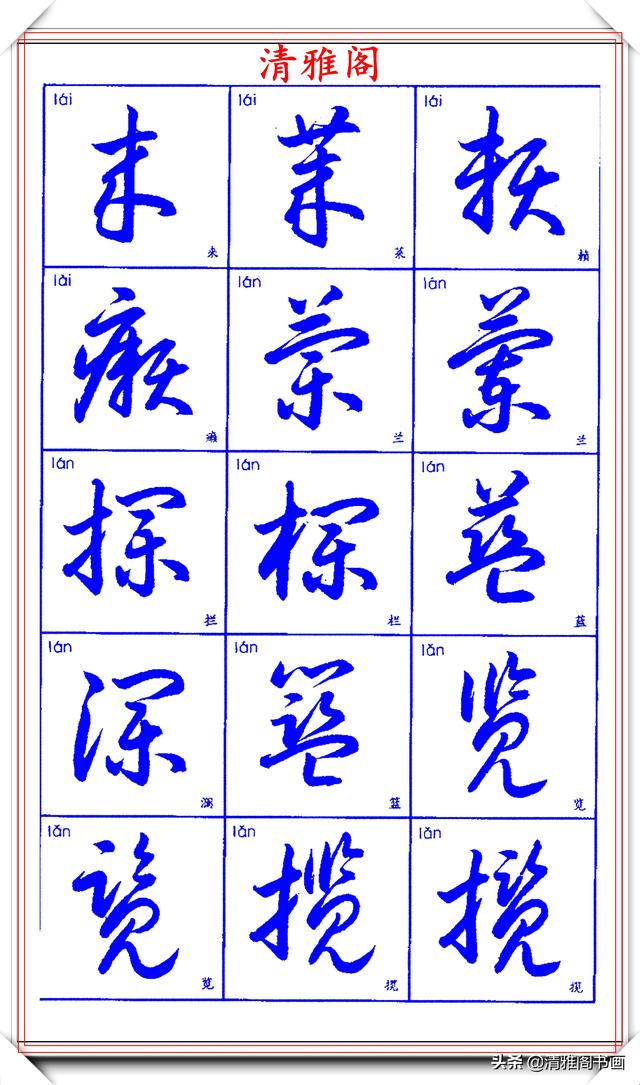 清雅阁
lái lái lái
来 莱 赖
来 莱 赖
lài lán lán
癞 兰 蘭
癞 兰 兰
lán lán lán
拦 栏 蓝
拦 栏 蓝
lán lán lǎn
澜 篮 览
澜 篮 览
lǎn lǎn lǎn
览 揽 揽
览 揽 揽
头条 @清雅阁书画